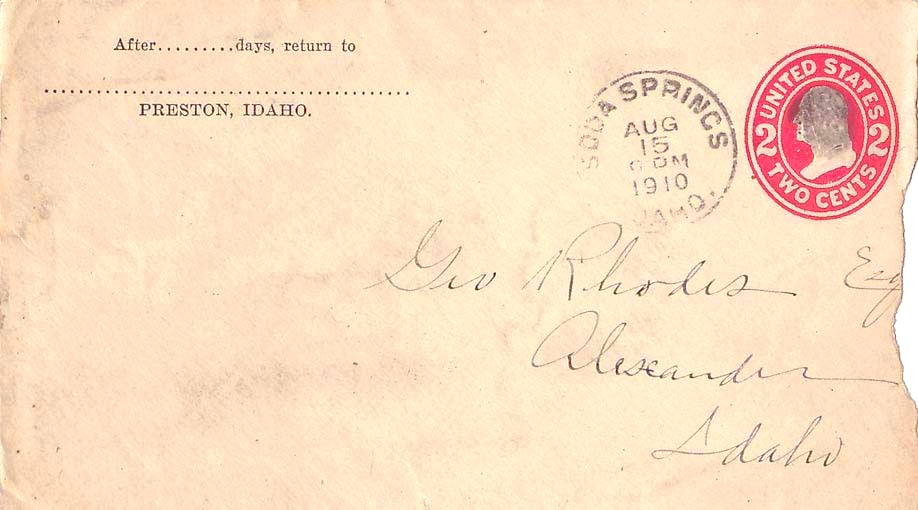 After.........days, return to
..........................................
PRESTON, IDAHO.
SODA SPRINGS
AUG
15
PM
1910
IDAHO.
UNITED STATES
2 2
TWO CENTS
Geo Rhodes Esq
Alexander
Idaho